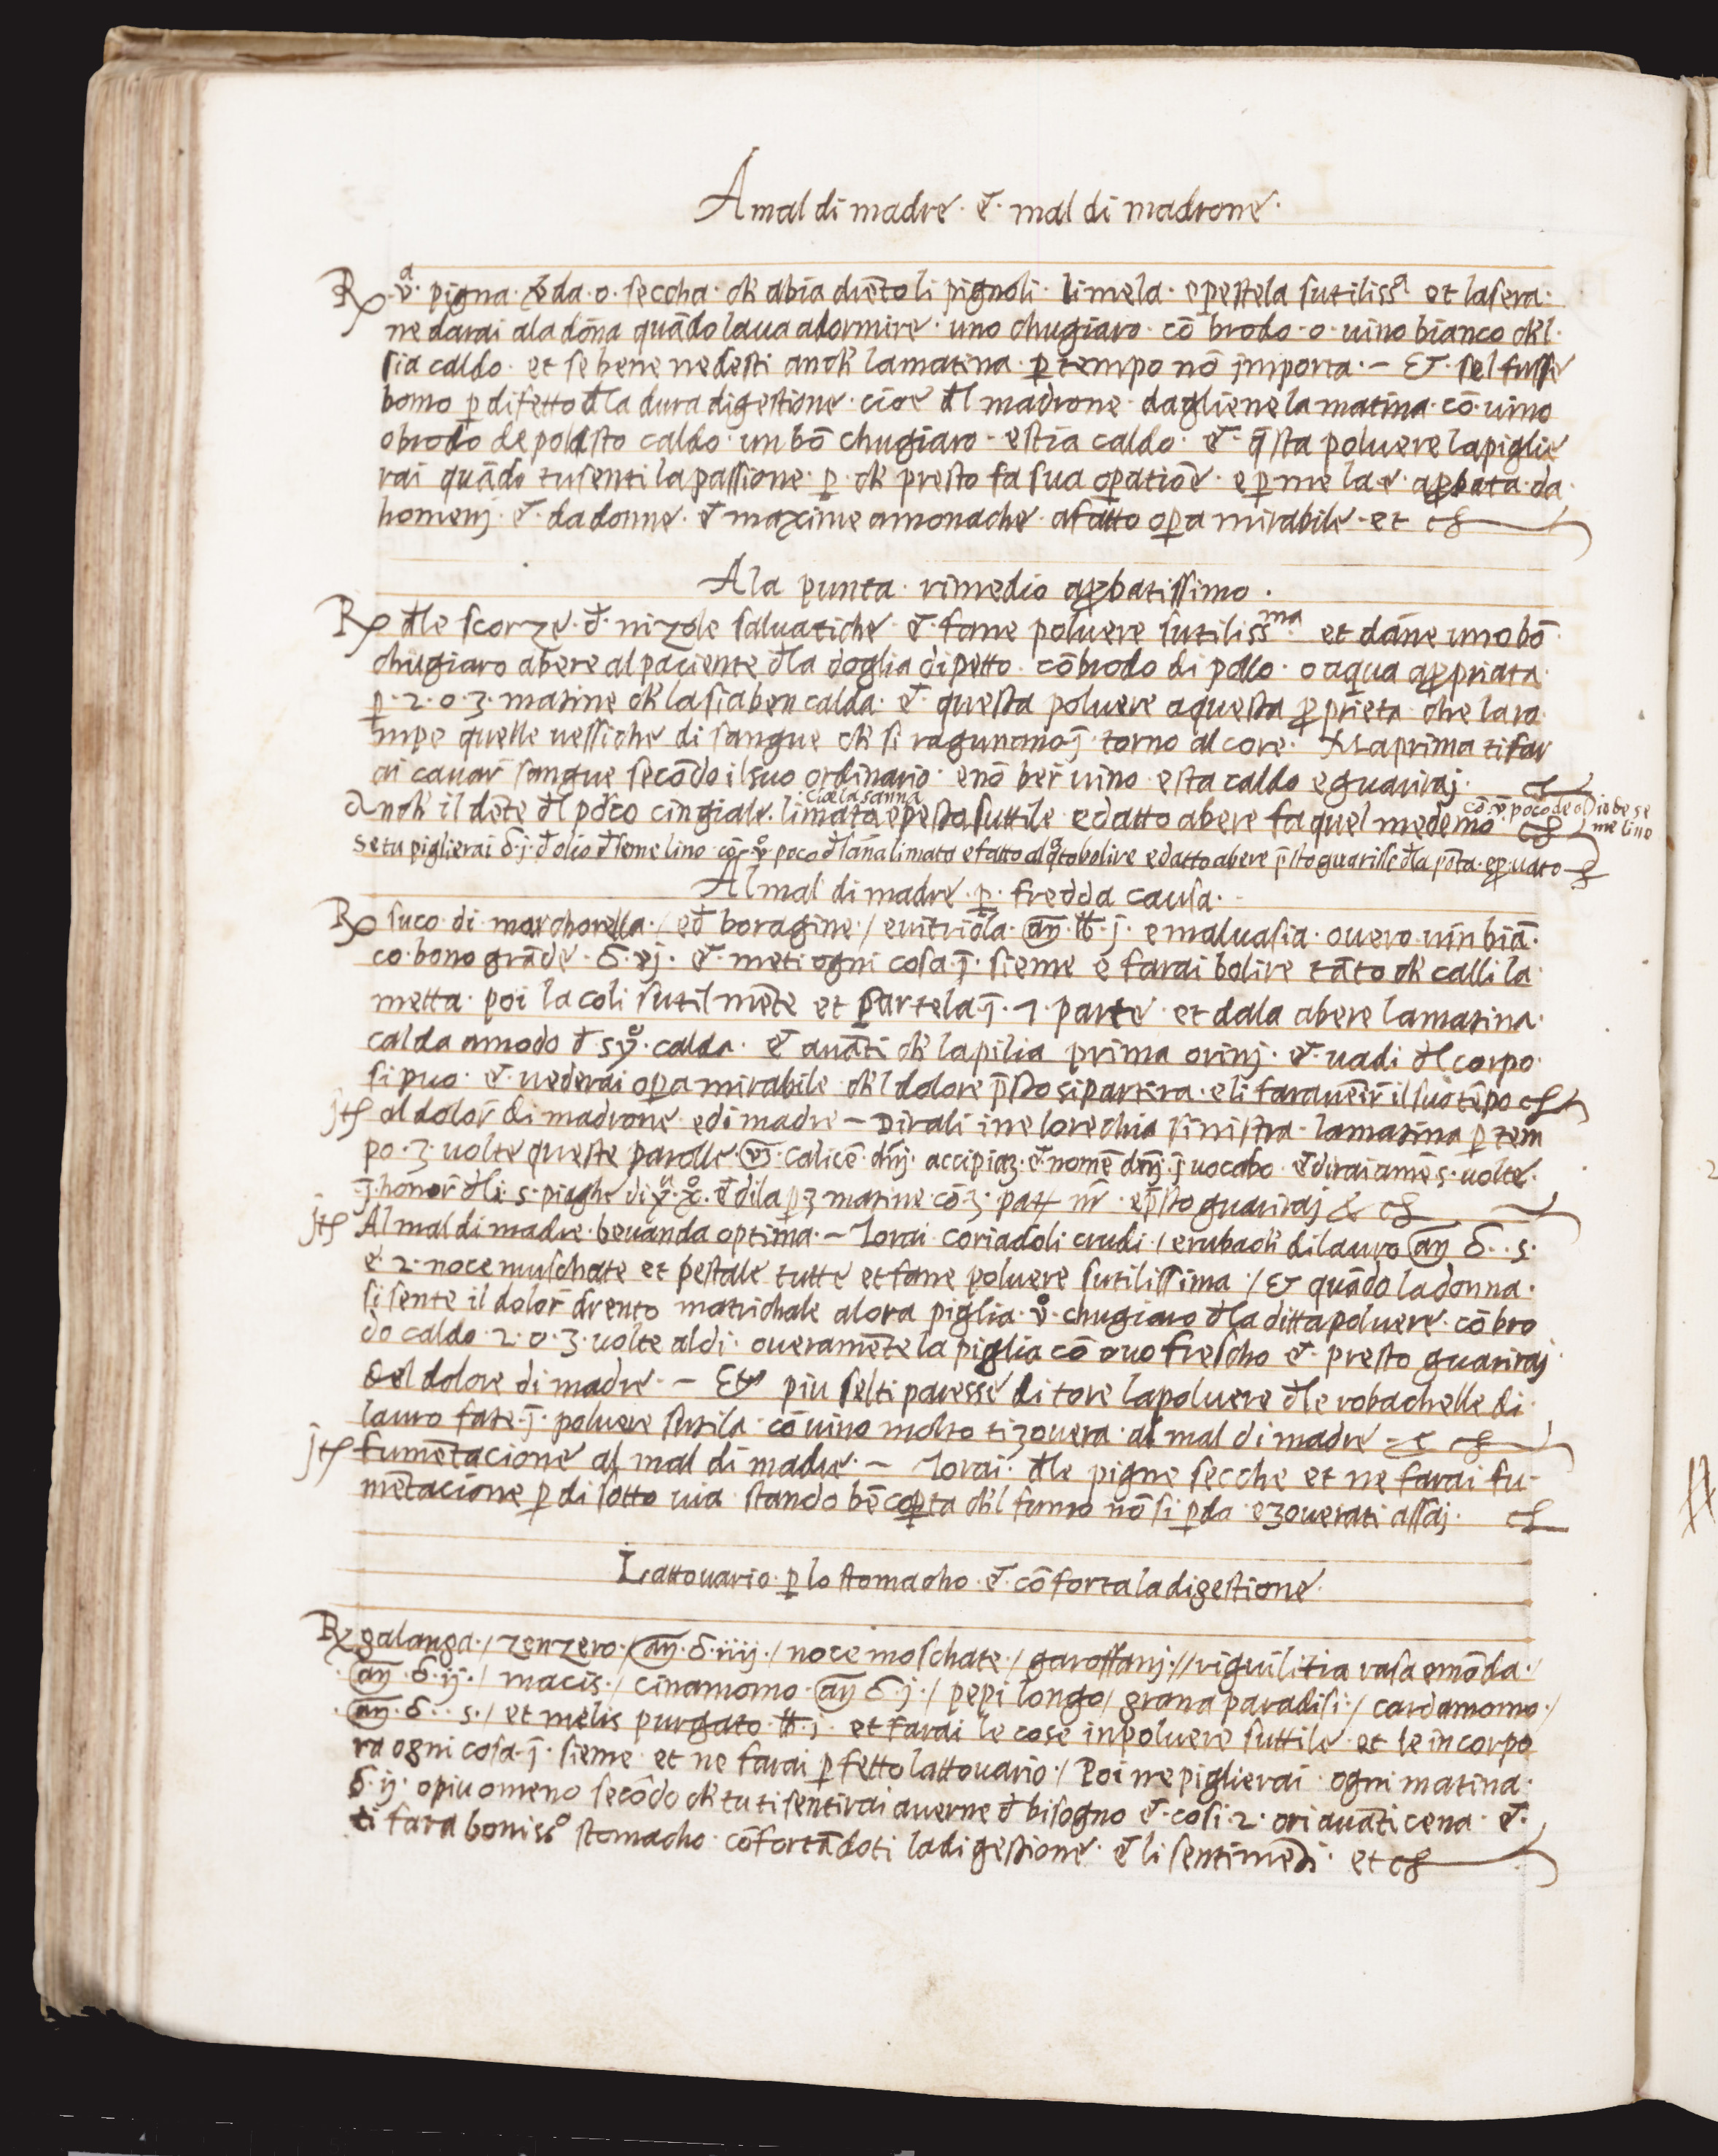 A mal di madre · e · mal di madrone ·
Rx · v̊ᵃ · pigna · v̄da · o · seccha · ch' abia drēto li pignoli · limela · e pestela sutilissᵃ et la sera ·
ne darai ala dōna quādo la va a dormire · uno chugiaro · cō brodo · o · uino bianco ch'l ·
sia caldo · et se bene ne desti anch' la matina · p̱ tempo nō jmporta · – Et · sel fusse
homo p̱ difetto d̄la dura digestione · cioe d̄l madrone · dagliene la matina · cō · uino
o brodo de polastro caldo · un bō chugiaro · e stia caldo · e · q̄sta poluere la piglie
rai quādo tu senti la passione · p̱ · ch' presto fa sua op̱atiōe · e p̱ me la · e · ap̱bata · da ·
homenj · e · da donne · e maxime a monache · a fatto op̱a mirabile · et c
A la punta · rimedio ap̱batissimo ·
Rx d̄le scorze · d̄ · nizole saluatiche · e · fane poluere sutilissᵐᵃ et dāne uno bō ·
chugiaro a bere al paciente d̄la doglia di petto · cō brodo di pollo · o aqua ap̱priata ·
p̱ · 2 · o · 3 · matine ch' la sia ben calda · e · questa poluere a questa p̱prieta che la ro ·
mpe quelle uessiche di sangue ch' si ragunano j̄ · torno al core · Ma prima ti far
ai cauar sangue secōdo il suo ordinario · e nō ber uino · e sta caldo e guariraj ·
cioe la sanna
Anch' il dēte d̄l porco cingiale · limata e pesta suttile · e datto a bere fa quel medemo · cō · v̊ · poco de olio de se
me lino
Se tu piglierai ʒ · j · d̄ olio d̄ seme lino · cō · v̊ · poco d̄ sāna limata e fatto alq̊to bolire e datto a bere p̄sto guarisse d̄la pōta · ep̱uato
Al mal di madre · p̱ · fredda causa ·
Rx suco · di · marchorella · / e d̄ boragine · / e uitriola · aņ · ℔ · j · e maluasia · ouero · uin biā ·
co · bono grāde · ʒ · vj · e · meti ogni cosa · j̄ · sieme e farai bolire tāto ch' calli la ·
metta · poi la coli sutilmēte et partela · j̄ · 7 · parte · et dala a bere la matina ·
calda a modo d̄ sẙ · calda · e auāti ch' la pilia prima orinj · e · uadi d̄l corpo ·
si puo · e · uederai op̱a mirabile · ch'l dolore p̄sto si partira · e li fara uenir il suo tēpo
jt al dolor di madrone · e di madre – Dirali ine lorechia sinistra · la matina p̱ tem
po · 3 · uolte queste parolle · calicē · dnj · accipiaʒ · e nomē dnj · j̄uocabo · e dirai amē 5 · uolte ·
j̄ · honor d̄li 5 · piaghe di · e dila p̱ 3 matine cō 3 · pat nr̄ · e p̄sto guariraj & c
jt Al mal di madre · beuanda optima · – Torai · coriadoli crudi · / e rubach' di lauro aņ ʒ · · 5 ·
e · 2 · noce muschate et pestale tutte et fane poluere sutilissima · / Et quādo la donna ·
si sente il dolor drento matrichale alora piglia · v̊ · chugiaro d̄la ditta poluere · cō bro
do caldo · 2 · o · 3 · uolte al di · oueramēte la piglia cō ouo frescho e · presto guariraj ·
del dolore di madre · – Et piu selti paresse di tore la poluere d̄le robachelle di
lauro fate · j̄ · poluere sutila · cō uino molto ti zouera · al mal di madre · & c
jt fumētacione al mal di madre · – Torai · d̄le pigne secche et ne farai fu-
mētacione p̱ di sotto uia stando bē cop̱ta ch'l fumo nō si p̱da · e zouerati assaj ·
Lattouario · p̱ lo stomacho · e · cōforta la digestione ·
Rx galanga · / zenzero · / aņ · ʒ · iiij · / noce moschate · / garoffanj · // riguilitia rasa e mōda · /
aņ · ʒ · ij · / macis · / cinamomo · aņ ʒ · j · / pepi longo / grana paradisi · / cardamomo · /
aņ · ʒ · · s · / et melis purgato ℔ · j · et farai le cose in poluere suttile · et le incorpo
ra ogni cosa · j̄ · sieme · et ne farai p̱fetto lattouario · / Poi ne piglierai · ogni matina ·
ʒ · ij · o piu o meno secōdo ch' tu ti sentirai auerne d̄ bisogno e · cosi · 2 · ori auāti cena · e ·
ti fara bonissº stomacho · cōfortādoti la digestione · e li sentimēti · et c